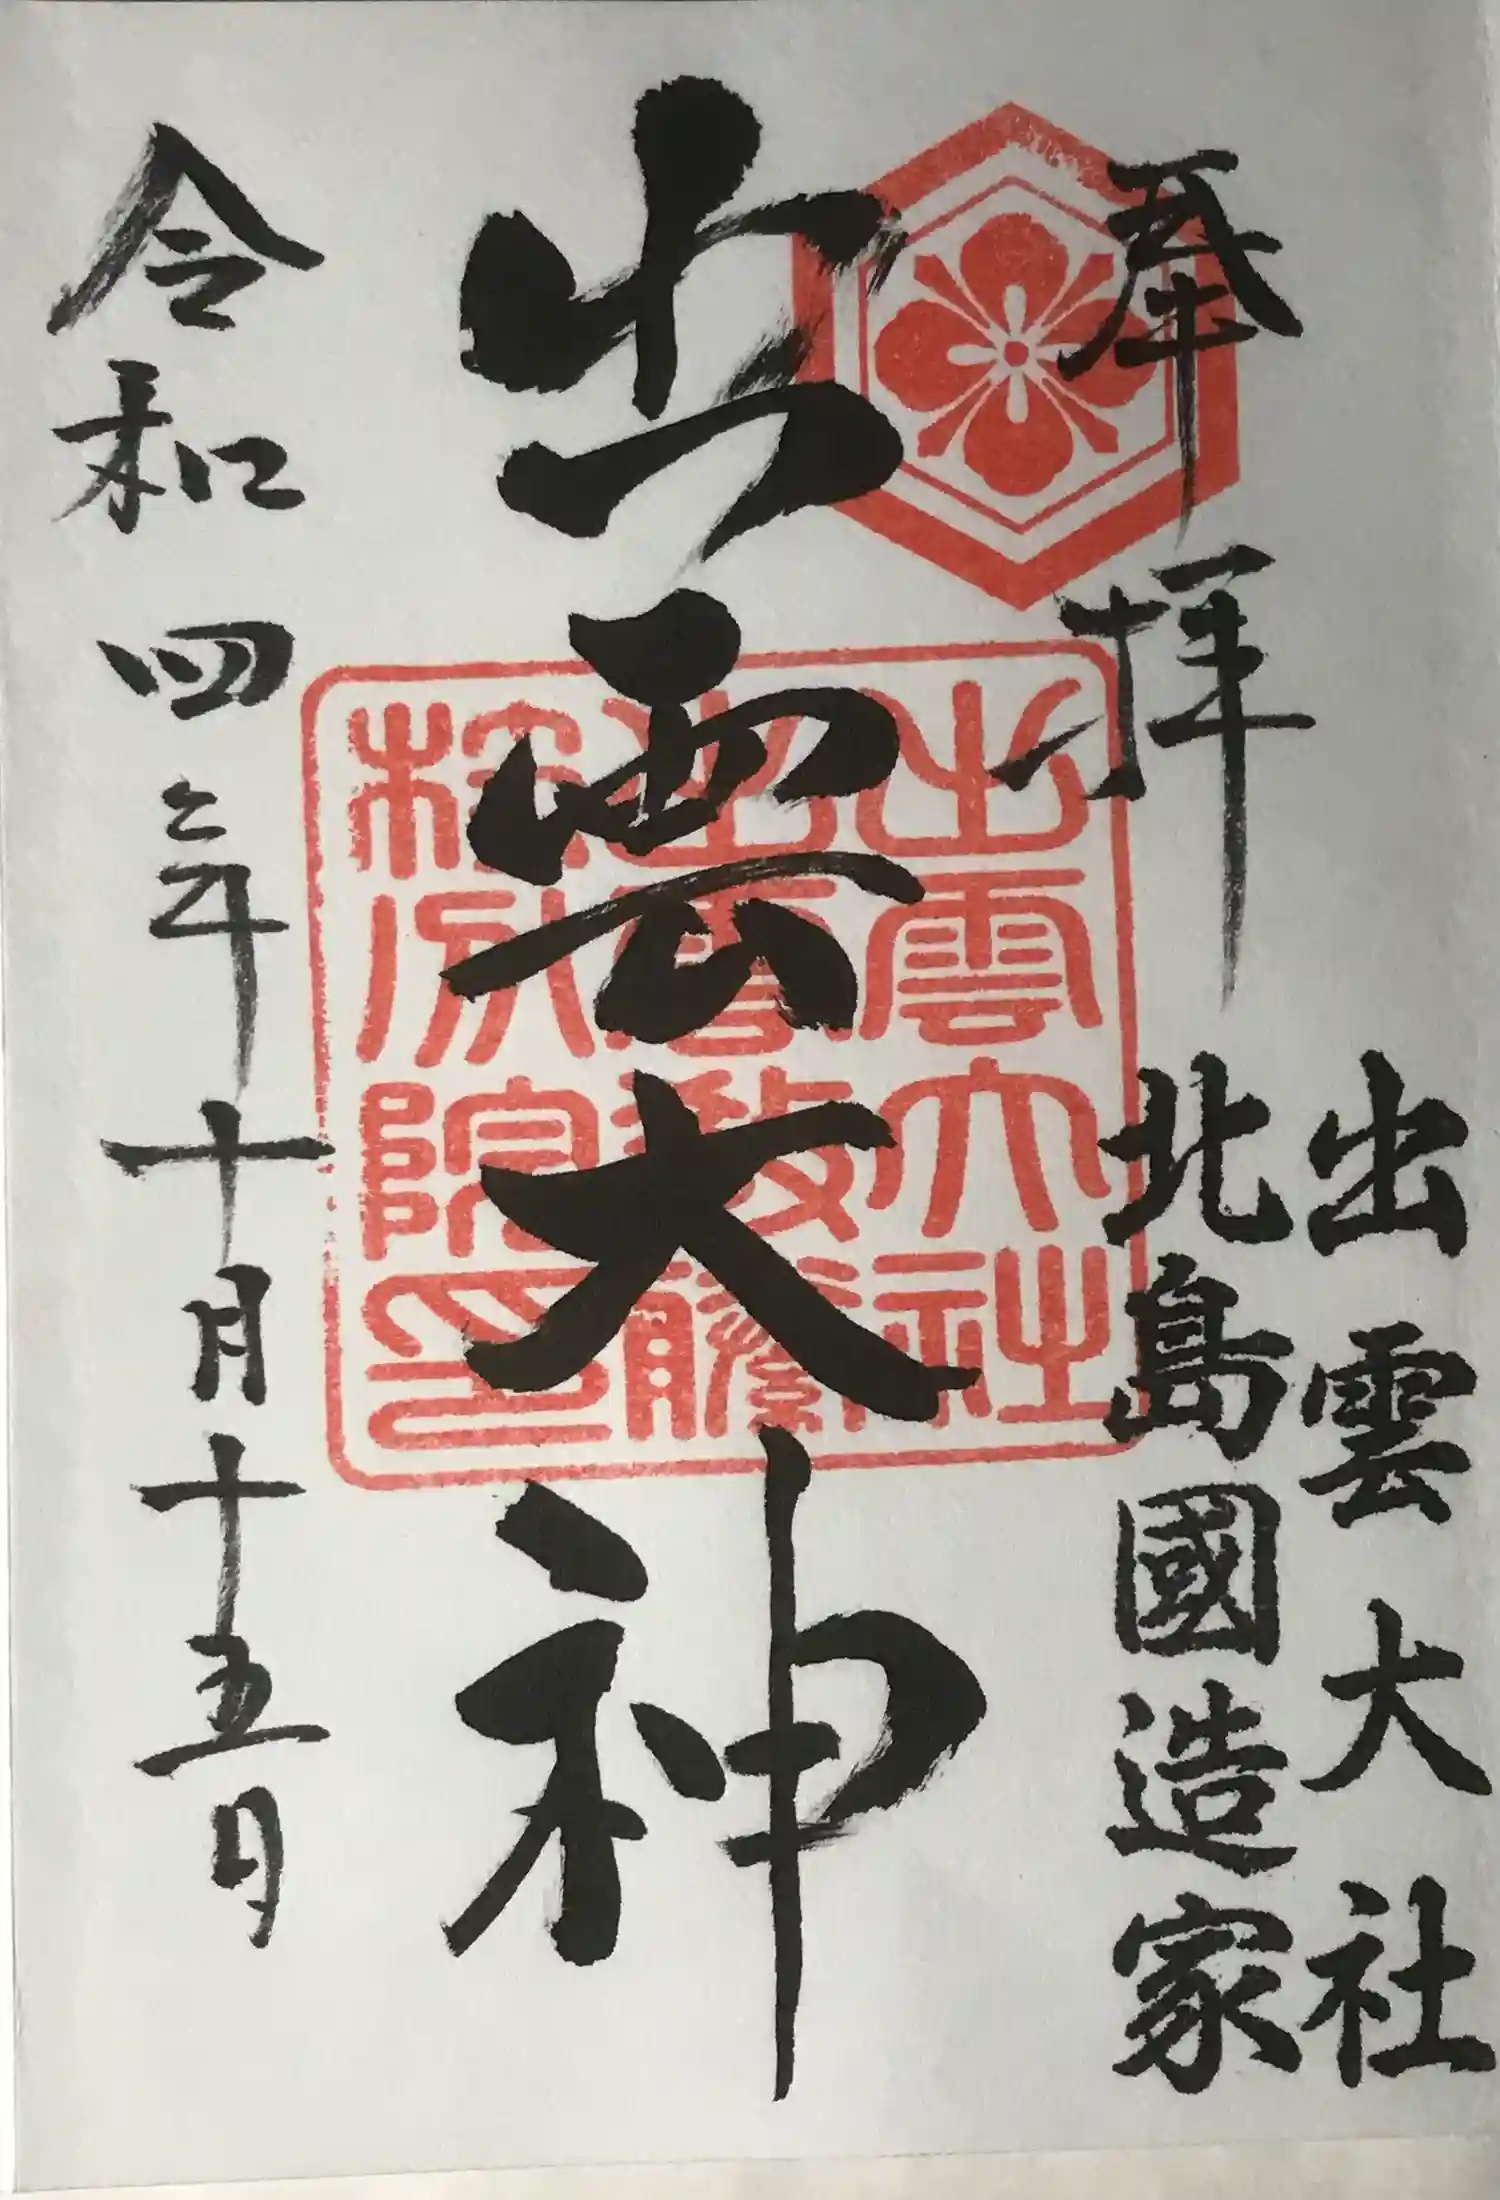 奉拝
出雲大社
北島國造家
出雲大神
令和四年十月十五日
出雲大社
出雲教
分院印